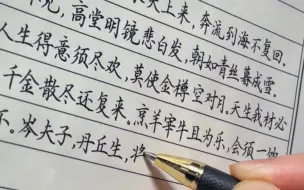 天上来，奔流到海不复回。
见，高堂明镜悲白发，朝如青丝暮成雪。
人生得意须尽欢，莫使金樽空对月，天生我材必
千金散尽还复来。烹羊宰牛且为乐，会须一饮
不。岑夫子，丹丘生，将